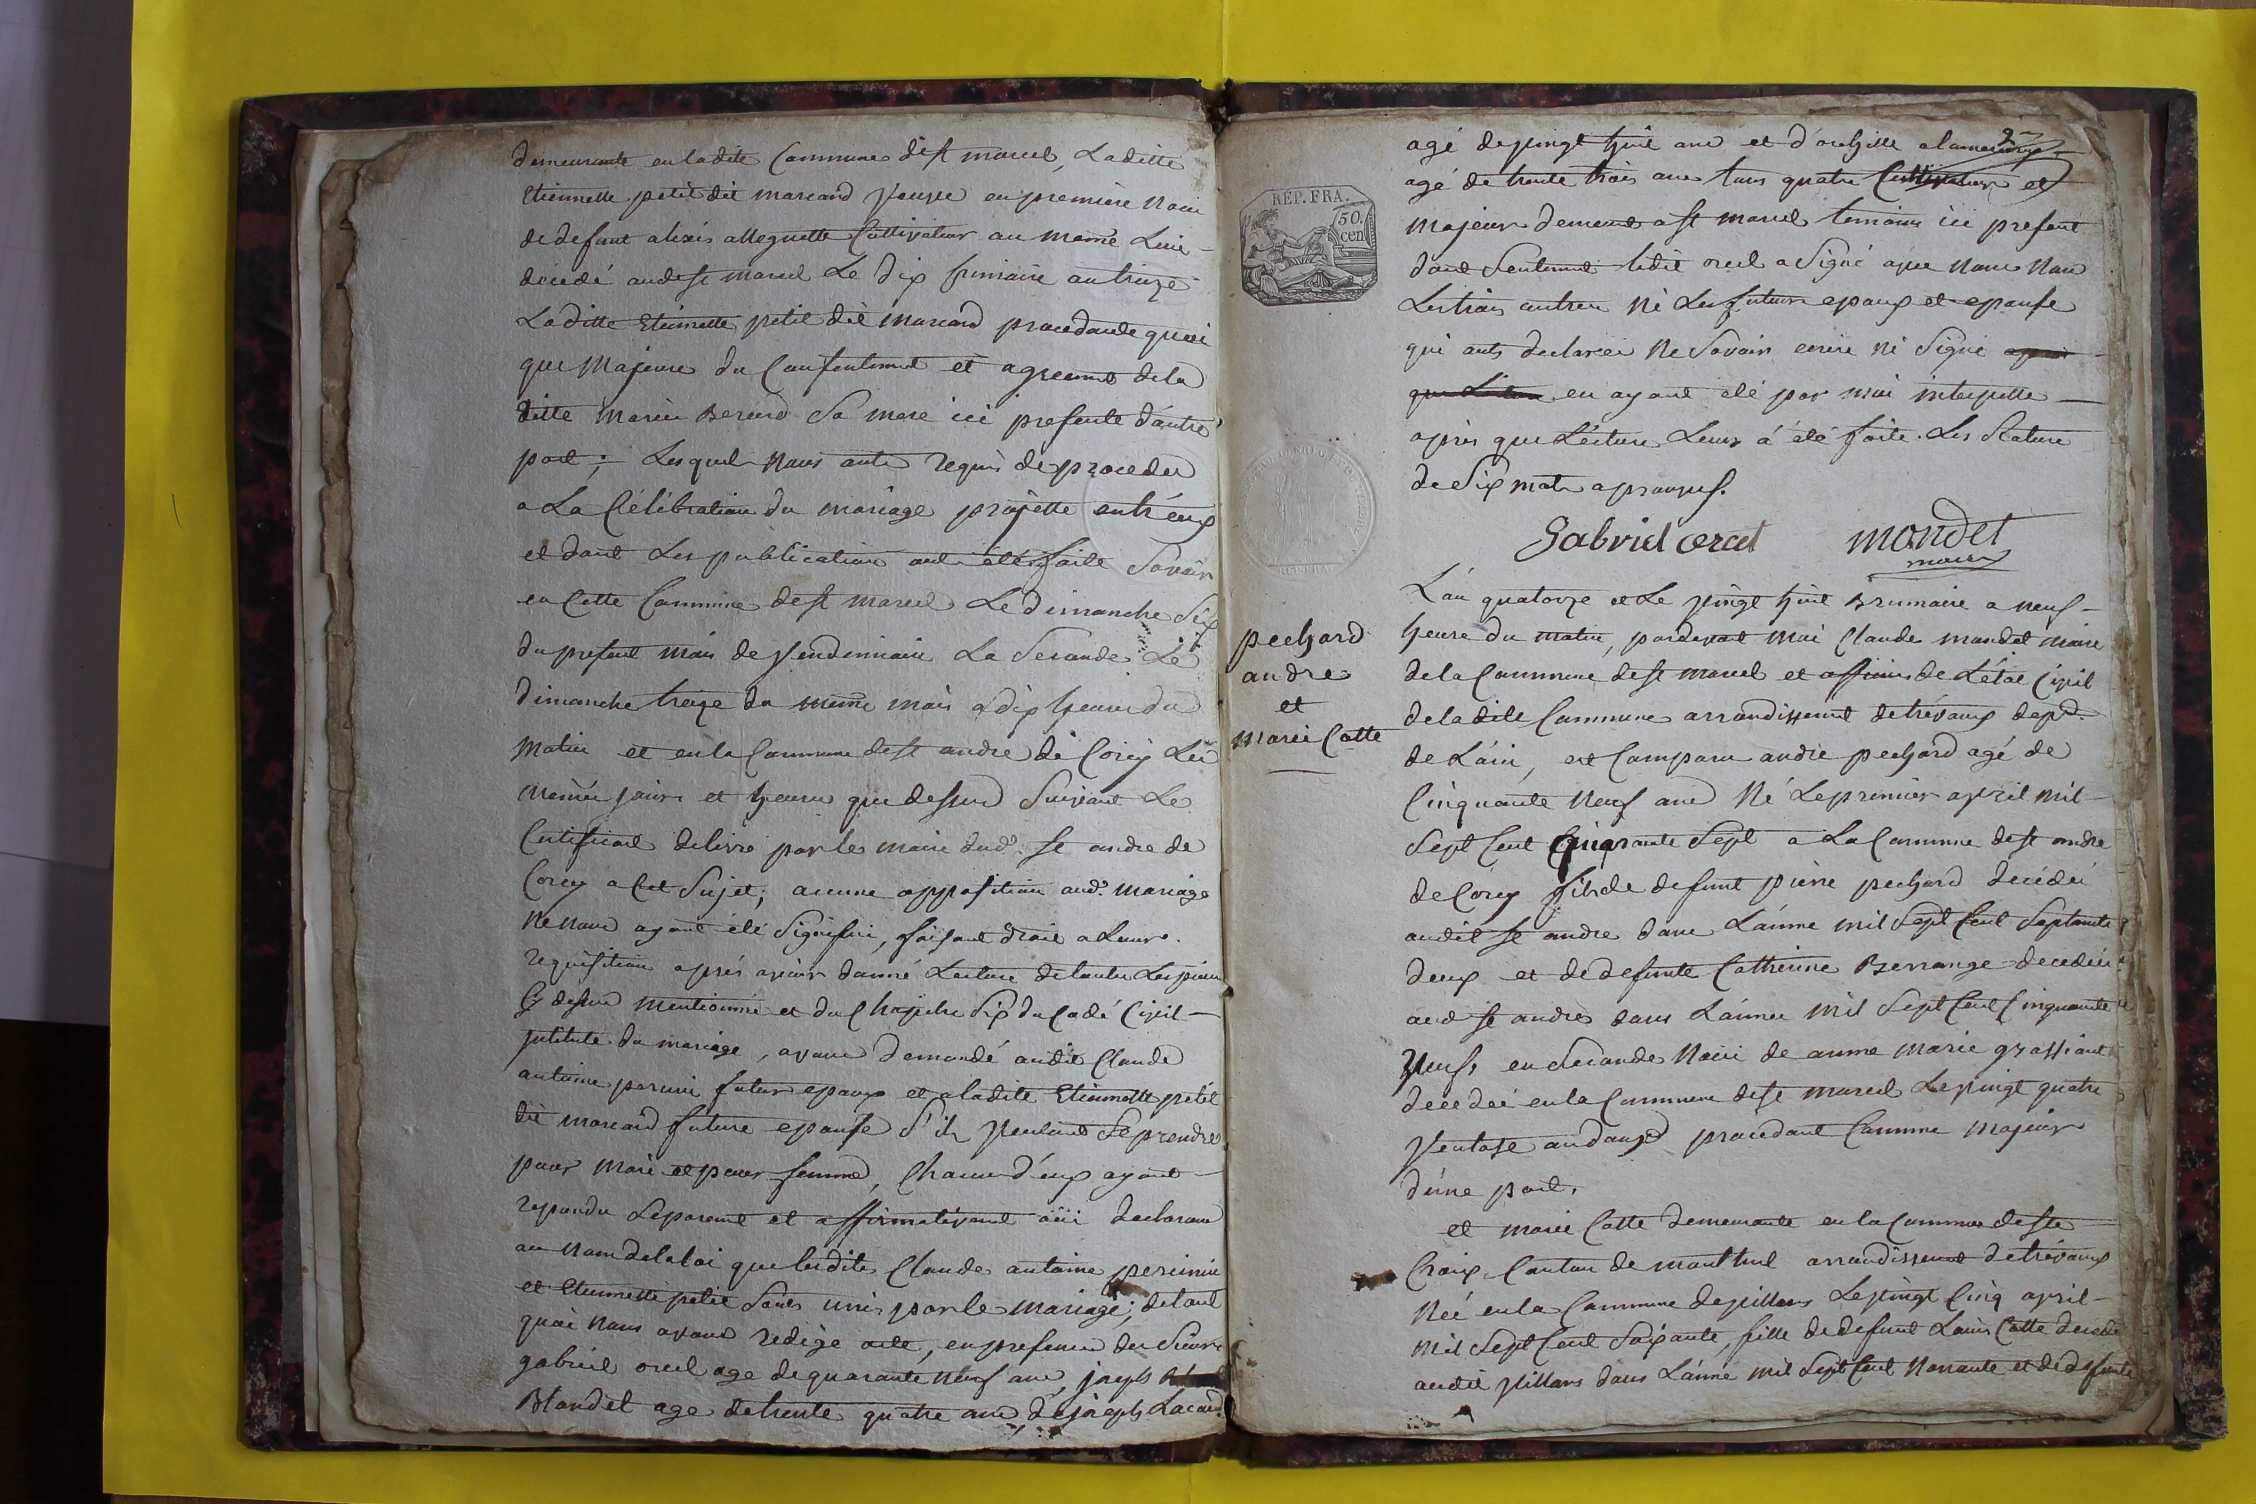 demeurante en ladite Commune de st marcel, Laditte
Etiennette petit dit marcand veuve en premiere Noce
de defunt alexis alleguette Cultivateur au meme Lieu
decedé aud st marcel Le dix frimaire an treize
Laditte Etiennette petit dit marcand procedante quoi
que Majeure du Consentement et agrement dela
ditte marie Berard Sa mere ici presente d'autre
part; Lesquels Nous ont requis de proceder
a La Célébration du mariage projetté entr'eux
et dont Les publications ont été faite Savoir
en Cette Commune de st marcel Le dimanche Six
du present mois de Vendemiaire La Seconde Le
dimanche treize du meme mois a dix heures du
Matin et en la Commune de st andre de Corcy Les
memes jours et heures que dessus Suivant Le
Certificat delivré par le maire dud. st andre de
Corcy a Cet Sujet; aucune opposition aud. mariage
Ne nous ayant été Signifiée, faisant droit a Leur
requisition aprés avoir donné Lecture de toutes Les pieces
Cy dessus mentionné et du Chapitre Six du Code Civil
intitule du mariage, avons demandé audit Claude
antoine futur epoux et a ladite Etiennette petit
dit marcand future epouse S'ils Veulent Se prendre
pour Mari et pour femme, Chacun d'eux ayant
repondu Separement et affirmativement declarons
au Nom de la loi que lesdits Claude antoine
et Etiennette petit Sont unis par le mariage; de tout
quoi Nous avons redigé acte, en presence des Sieurs
gabriel orcel age de quarante Neuf ans, joseph
Blondel age de trente quatre ans, de joseph
agé de vingt huit ans et d'
agé de trente trois ans tous quatre Cultivateur et
Majeurs demeurt a st marcel temoins ici present
dont Seulement ledit orcel a Signé avec Nous Non
Les trois autres Ni Les futurs epoux et epouse
qui ont declarée Ne Savoir ecrire Ni Signé apres
que en ayant eté par moi interpellé
aprés que Lécture Leurs á été faite. Les Rature
de Six mots aprouvés.
Gabriel orcel mondet
maire
pechard
andre
et
marie Catte
L'an quatorze et Le vingt huit Brumaire a neuf
heure du matin, pardevant Moi Claude mondet Maire
de la Commune de st marcel et officier de L'état Civil
de ladite Commune arrondissement de trévoux dept.
de L'ain, est Comparu andre pechard agé de
Cinquante Neuf ans Né Le premier avril mil
Sept Cent quarante Sept a La Commune de st andre
de Corcy fils de defunt pierre pechard decédé
audit st andre dans L'année mil Sept Cent Septante
deux et de defunte Catherine Berrange decedée
aud st andre dans L'année mil Sept Cent Cinquante
Neuf, en Seconde Noce de anne marie grassiant
decedée en la Commune de st marcel Le vingt quatre
Ventose an douze procedant Comme Majeur
d'une part.
et marie Catte demeurante en la Commune de ste
Croix Canton de montluel arrondissement de trévoux
Née en la Commune de villars Le vingt Cinq avril
mil Sept Cent Soixante, fille de defunt Louis Catte decedé
audit villars dans L'année mil Sept Cent Nonante et de defunte
REP. FRA.
50.
cen